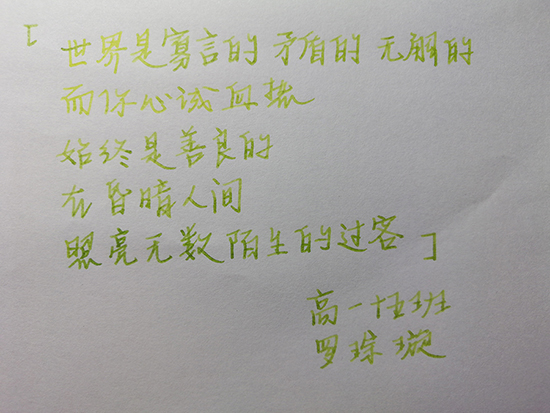 「世界是寡言的 矛盾的 无解的
而你心诚血热
始终是善良的
在昏暗人间
照亮无数陌生的过客」
高一十五班
罗琮璇